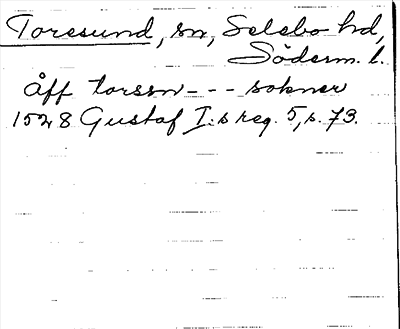 Toresund, sn, Selebo hd,
Söderm. l.
Åff torssn - - - soknar
1528 Gustaf I:s reg. 5, s. 73.